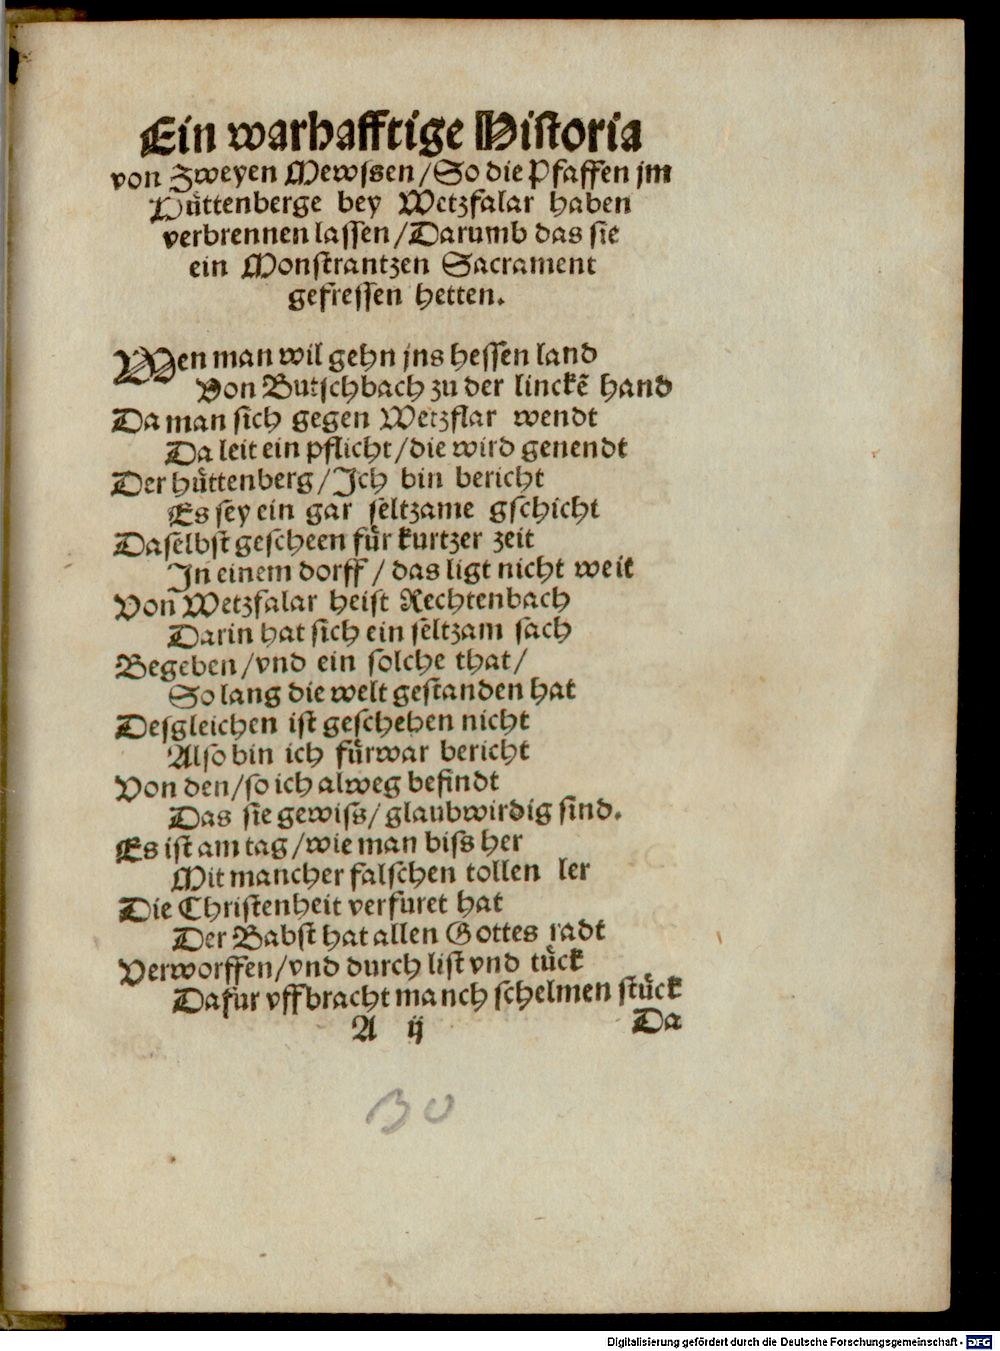 Ein warhafftige Historia
von Zweyen Mewssen/So die Pfaffen jm
Hüttenberge bey Wetzfalar haben
verbrennen lassen/Darumb das sie
ein Monstrantzen Sacrament
gefressen hetten.
Wen man wil gehn jns hessen land
Von Butschbach zu der linckē hand
Da man sich gegen Wetzflar wendt
Da leit ein pflicht/die wird genendt
Der hüttenberg/Ich bin bericht
Es sey ein gar seltzame gschicht
Daselbst gescheen für kurtzer zeit
In einem dorff/das ligt nicht weit
Von Wetzfalar heist Rechtenbach
Darin hat sich ein seltzam sach
Begeben/vnd ein solche that/
So lang die welt gestanden hat
Desgleichen ist geschehen nicht
Also bin ich fürwar bericht
Von den/so ich alweg befindt
Das sie gewiss/glaubwirdig sind.
Es ist am tag/wie man biss her
Mit mancher falschen tollen ler
Die Christenheit verfuret hat
Der Babst hat allen Gottes radt
Verworffen/vnd durch list vnd tück
Dafur vffbracht manch schelmen stück
A ij Da
30
Digitalisierung gefördert durch die Deutsche Forschungsgemeinschaft - DFG